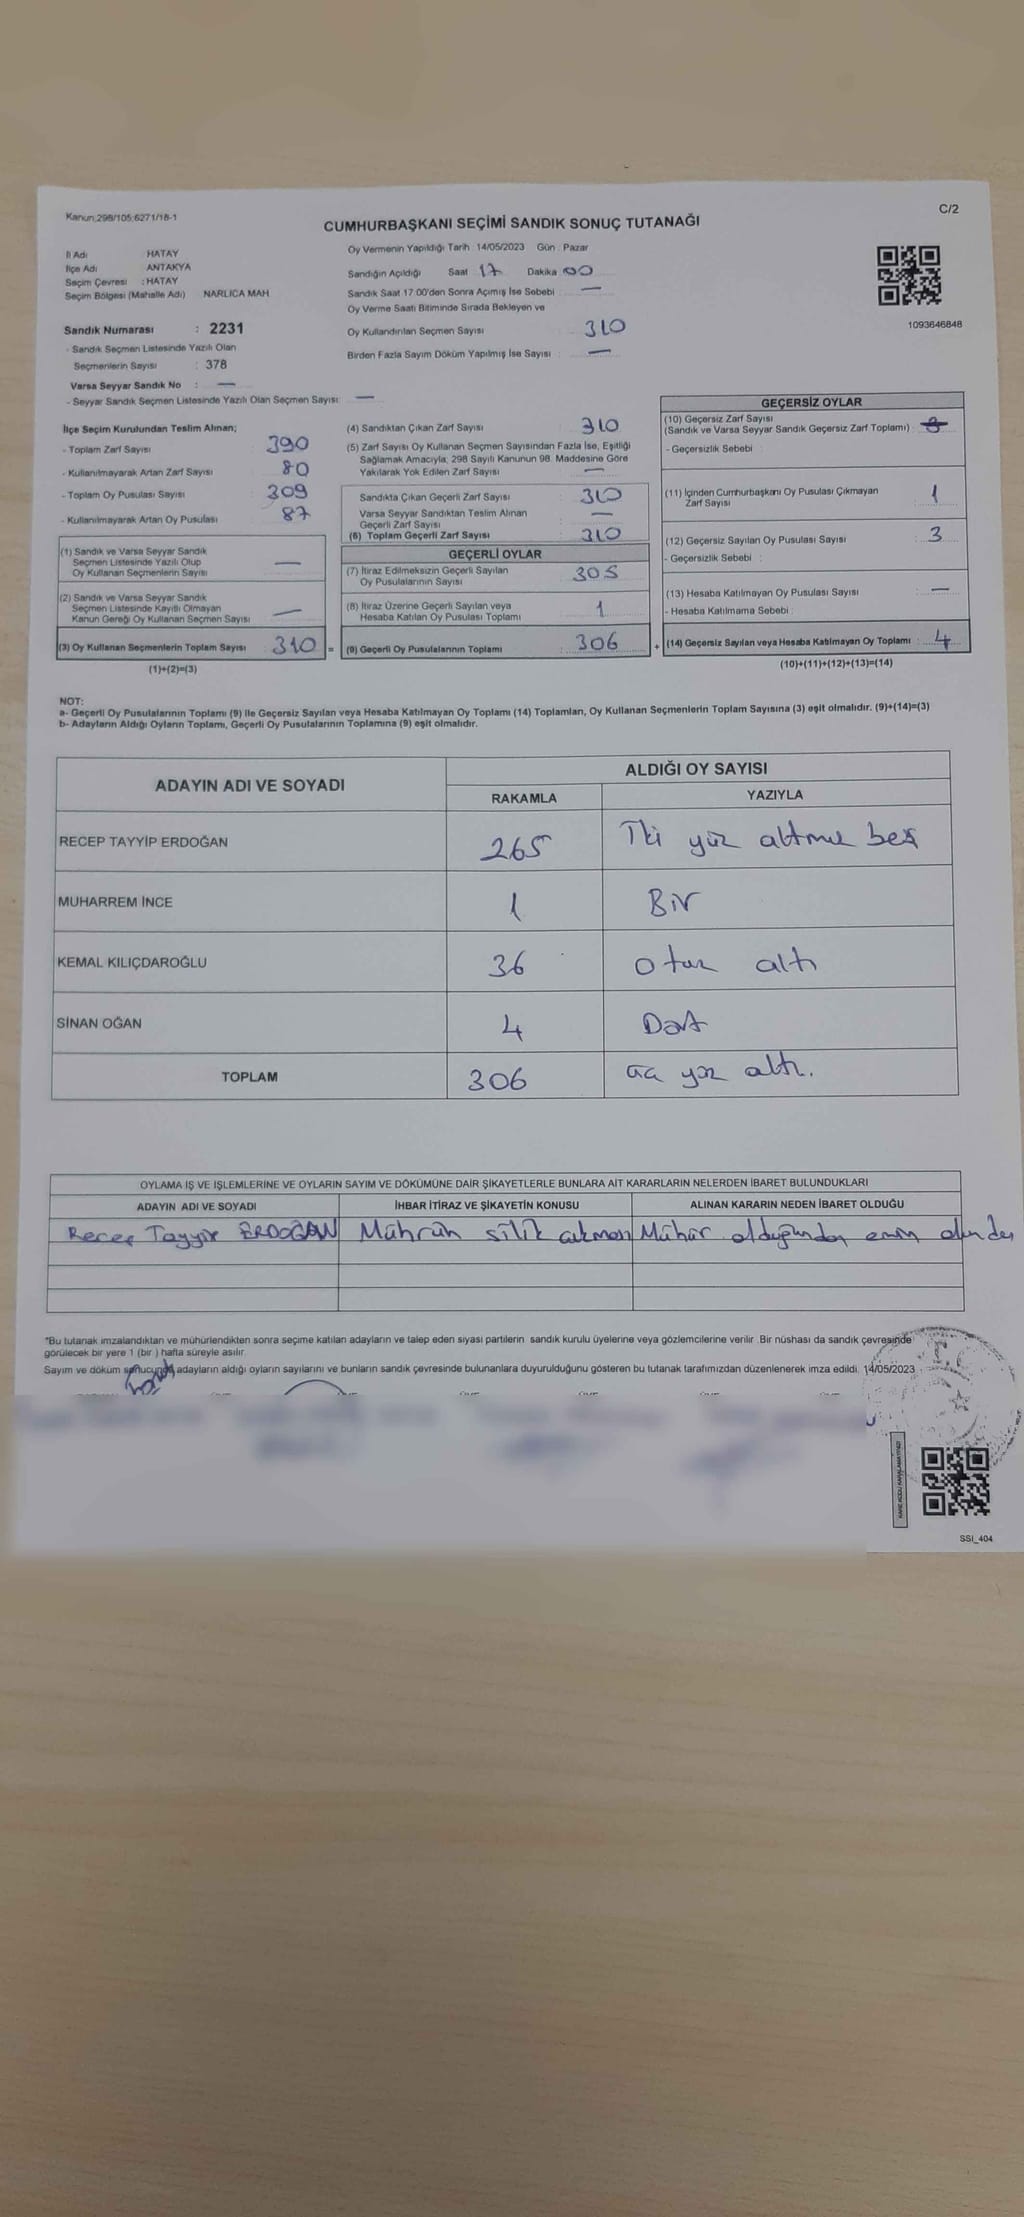 Kanun;298/105;6271/18-1
C/2
CUMHURBAŞKANI SEÇİMİ SANDIK SONUÇ TUTANAĞI
İl Adı : HATAY
İlçe Adı : ANTAKYA
Seçim Çevresi : HATAY
Seçim Bölgesi (Mahalle Adı) NARLICA MAH
Sandık Numarası : 2231
- Sandık Seçmen Listesinde Yazılı Olan
Seçmenlerin Sayısı : 378
Varsa Seyyar Sandık No : —
- Seyyar Sandık Seçmen Listesinde Yazılı Olan Seçmen Sayısı: —
Oy Vermenin Yapıldığı Tarih : 14/05/2023 Gün : Pazar
Sandığın Açıldığı Saat 17 Dakika 00
Sandık Saat 17:00'den Sonra Açımış İse Sebebi : —
Oy Verme Saati Bitiminde Sırada Bekleyen ve
Oy Kullandırılan Seçmen Sayısı 310
Birden Fazla Sayım Döküm Yapılmış İse Sayısı : —
1093646848
İlçe Seçim Kurulundan Teslim Alınan;
- Toplam Zarf Sayısı 390
- Kullanılmayarak Artan Zarf Sayısı 80
- Toplam Oy Pusulası Sayısı 309
- Kullanılmayarak Artan Oy Pusulası 87
(1) Sandık ve Varsa Seyyar Sandık
Seçmen Listesinde Yazılı Olup
Oy Kullanan Seçmenlerin Sayısı —
(2) Sandık ve Varsa Seyyar Sandık
Seçmen Listesinde Kayıtlı Olmayan
Kanun Gereği Oy Kullanan Seçmen Sayısı —
(3) Oy Kullanan Seçmenlerin Toplam Sayısı 310 =
(1)+(2)=(3)
(4) Sandıktan Çıkan Zarf Sayısı 310
(5) Zarf Sayısı Oy Kullanan Seçmen Sayısından Fazla İse, Eşitliği
Sağlamak Amacıyla, 298 Sayılı Kanunun 98. Maddesine Göre
Yakılarak Yok Edilen Zarf Sayısı —
Sandıkta Çıkan Geçerli Zarf Sayısı 310
Varsa Seyyar Sandıktan Teslim Alınan
Geçerli Zarf Sayısı —
(6) Toplam Geçerli Zarf Sayısı 310
GEÇERLİ OYLAR
(7) İtiraz Edilmeksizin Geçerli Sayılan
Oy Pusulalarının Sayısı 305
(8) İtiraz Üzerine Geçerli Sayılan veya
Hesaba Katılan Oy Pusulası Toplamı 1
(9) Geçerli Oy Pusulalarının Toplamı 306 +
GEÇERSİZ OYLAR
(10) Geçersiz Zarf Sayısı
(Sandık ve Varsa Seyyar Sandık Geçersiz Zarf Toplamı) :
- Geçersizlik Sebebi :
(11) İçinden Cumhurbaşkanı Oy Pusulası Çıkmayan
Zarf Sayısı 1
(12) Geçersiz Sayılan Oy Pusulası Sayısı : 3
- Geçersizlik Sebebi :
(13) Hesaba Katılmayan Oy Pusulası Sayısı : —
- Hesaba Katılmama Sebebi :
(14) Geçersiz Sayılan veya Hesaba Katılmayan Oy Toplamı : 4
(10)+(11)+(12)+(13)=(14)
NOT:
a- Geçerli Oy Pusulalarının Toplamı (9) ile Geçersiz Sayılan veya Hesaba Katılmayan Oy Toplamı (14) Toplamları, Oy Kullanan Seçmenlerin Toplam Sayısına (3) eşit olmalıdır. (9)+(14)=(3)
b- Adayların Aldığı Oyların Toplamı, Geçerli Oy Pusulalarının Toplamına (9) eşit olmalıdır.
ADAYIN ADI VE SOYADI ALDIĞI OY SAYISI
RAKAMLA YAZIYLA
RECEP TAYYİP ERDOĞAN 265 İki yüz altmış beş
MUHARREM İNCE 1 Bir
KEMAL KILIÇDAROĞLU 36 otuz altı
SİNAN OĞAN 4 Dört
TOPLAM 306 üç yüz altı.
OYLAMA İŞ VE İŞLEMLERİNE VE OYLARIN SAYIM VE DÖKÜMÜNE DAİR ŞİKAYETLERLE BUNLARA AİT KARARLARIN NELERDEN İBARET BULUNDUKLARI
ADAYIN ADI VE SOYADI İHBAR İTİRAZ VE ŞİKAYETİN KONUSU ALINAN KARARIN NEDEN İBARET OLDUĞU
Recep Tayyip ERDOĞAN Mührün silik Mühür olduğundan emin
*Bu tutanak imzalandıktan ve mühürlendikten sonra seçime katılan adayların ve talep eden siyasi partilerin sandık kurulu üyelerine veya gözlemcilerine verilir. Bir nüshası da sandık çevresinde
görülecek bir yere 1 (bir ) hafta süreyle asılır.
Sayım ve döküm sonucunda adayların aldığı oyların sayılarını ve bunların sandık çevresinde bulunanlara duyurulduğunu gösteren bu tutanak tarafımızdan düzenlenerek imza edildi. 14/05/2023
KARE KODU KARALAMAYINIZ!
SSI_404